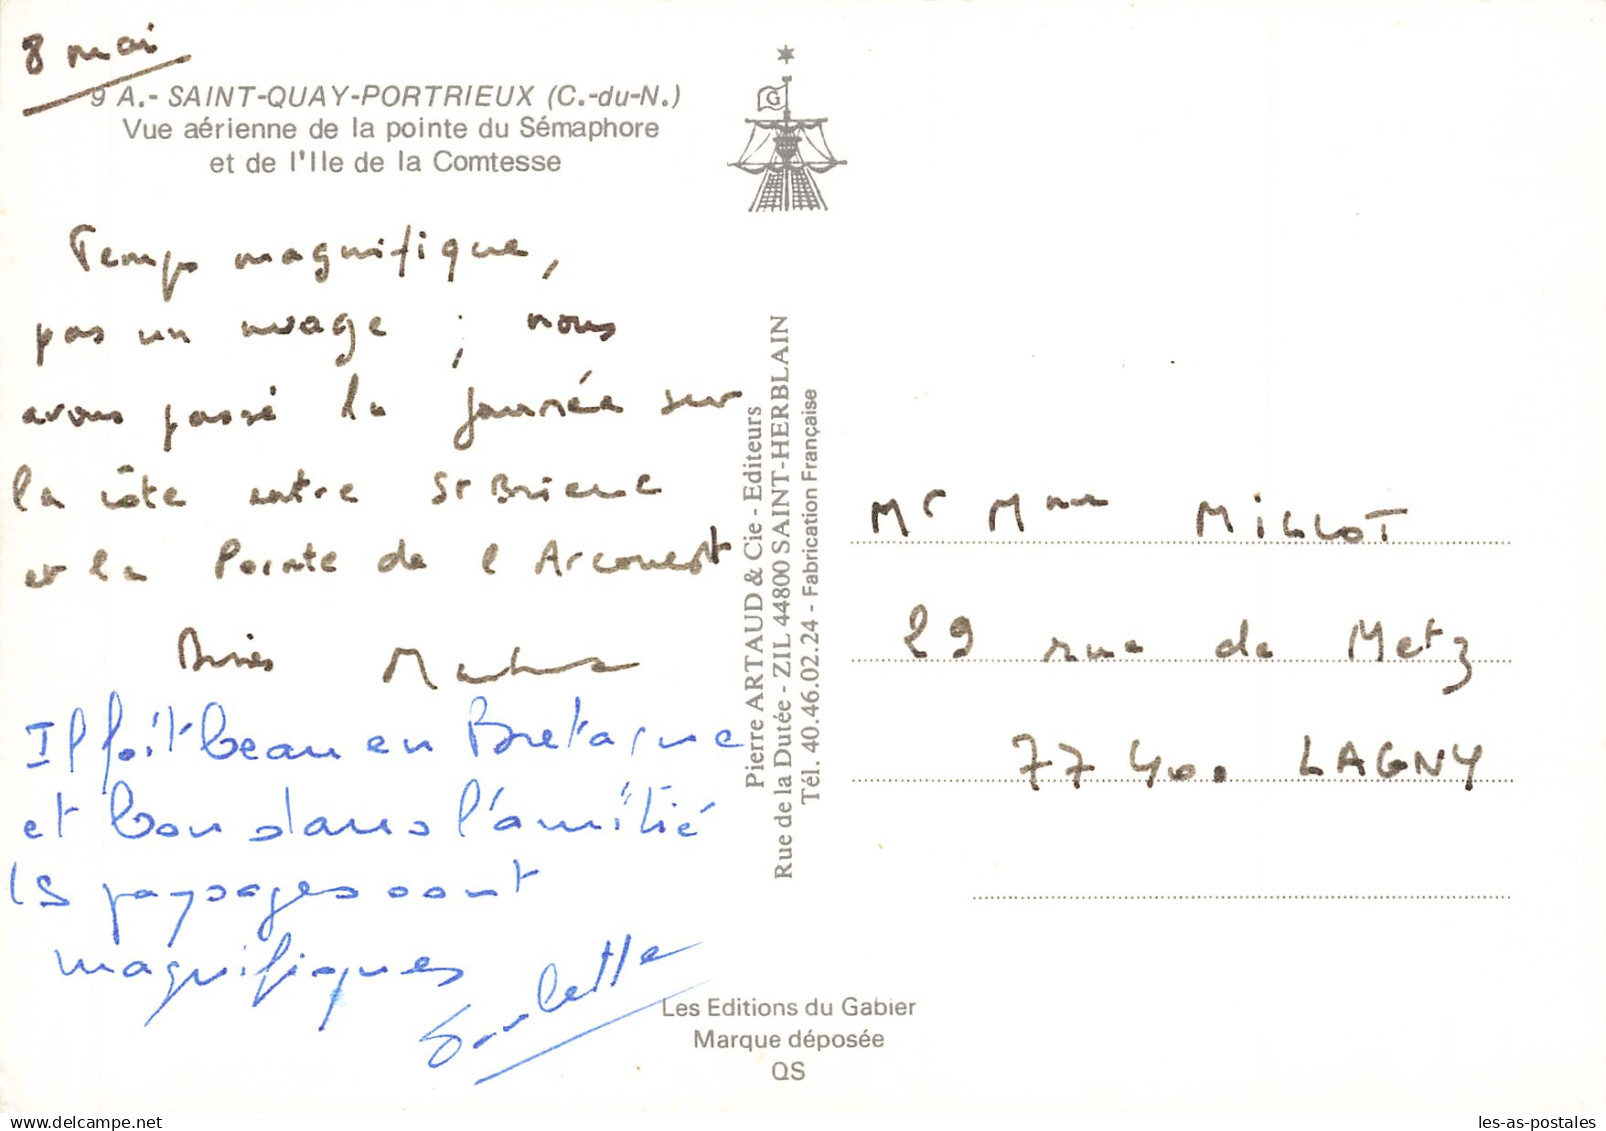 8 mai
9 A.- SAINT-QUAY-PORTRIEUX (C.-du-N.)
Vue aérienne de la pointe du Sémaphore
et de l'Ile de la Comtesse
G
Temps magnifique,
pas un nuage ; nous
avons passé la journée sur
la côte entre St Brieuc
et la Pointe de l Arcouest
Bises
Il fait beau en Bretagne
et bon dans l'amitié
ls paysages sont
magnifiques
Pierre ARTAUD & Cie - Editeurs
Rue de la Dutée - ZIL 44800 SAINT-HERBLAIN
Tél. 40.46.02.24 - Fabrication Française
Mr Mme MILLOT
29 rue de Metz
77 400 LAGNY
Les Editions du Gabier
Marque déposée
QS
delcampe.net
les-as-postales